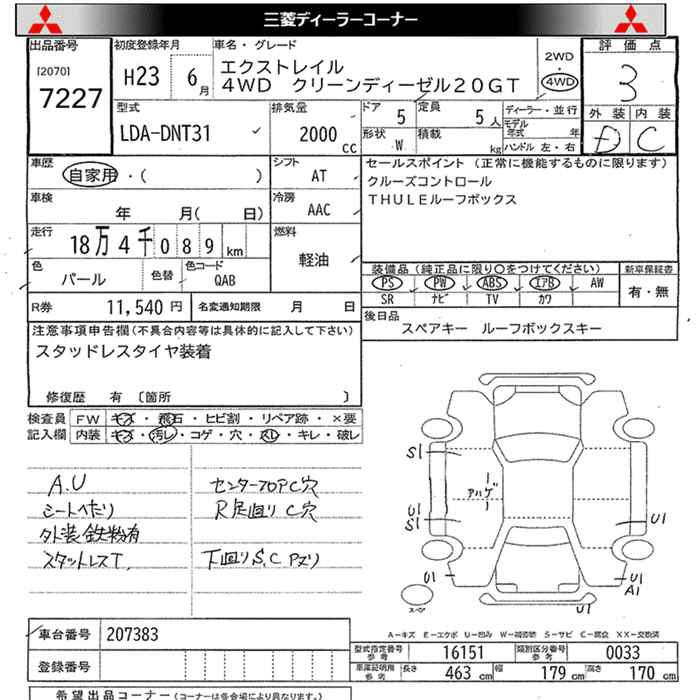 三菱ディーラーコーナー
出品番号
[2070]
7227
初度登録年月
H23 6月
車名・グレード
エクストレイル
4WD クリーンディーゼル20GT
2WD
・
4WD
評価点
3
外装 内装
D C
型式
LDA-DNT31
排気量
2000 CC
ドア 5
定員 5人
形状 W
積載 kg
ディーラー・並行
モデル年式 年
ハンドル 左・右
車歴
自家用・( )
シフト AT
車検
年 月( 日)
冷房 AAC
走行
18万4千089km
燃料
軽油
色
パール
色替
色コード
QAB
R券 11,540円
名変通知期限 月 日
セールスポイント(正常に機能するものに限ります)
クルーズコントロール
THULEルーフボックス
装備品(純正品に限り○をつけてください)
新車保証書
PS PW ABS エアB AW
SR ナビ TV カワ
有・無
後日品
スペアキー ルーフボックスキー
注意事項申告欄(不具合内容等は具体的に記入して下さい)
スタッドレスタイヤ装着
修復歴 有 〔箇所 〕
検査員 FW キズ・飛石・ヒビ割・リペア跡・×要
記入欄 内装 キズ・汚レ・コゲ・穴・スレ・キレ・破レ
A.U
シートへたり
外装鉄粉有
スタットレスT.
センターフロアC穴
R足廻りC穴
下廻りS.C Pズリ
S1
アルゲ
U1
S1
U1
U1
U1
A1
U1
スペア
A-キズ E-エクボ U-凹み W-補修跡 S-サビ C-腐食 XX-交換済
車台番号 207383
登録番号
型式指定番号 参考 16151
類別区分番号 参考 0033
車庫証明用 参考 長さ 463 cm 幅 179 cm 高さ 170 cm
希望出品コーナー(コーナーは各会場により異なります。)